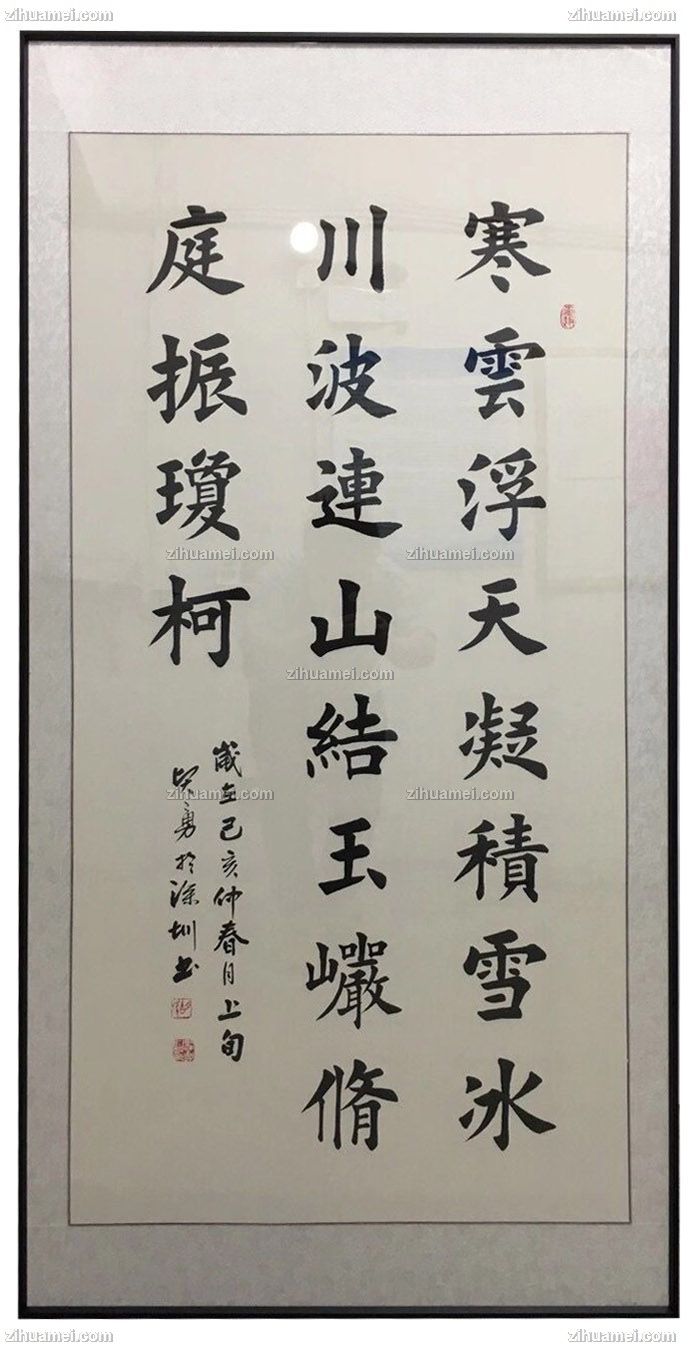 寒雲浮天凝積雪冰
川波連山結玉巗脩
庭振瓊柯
歲在己亥仲春月上旬
勇於深圳書
zihuamei.com
zihuamei.com
zihuamei.com
zihuamei.com
zihuamei.com
zihuamei.com
zihuamei.com
zihuamei.com
zihuamei.com